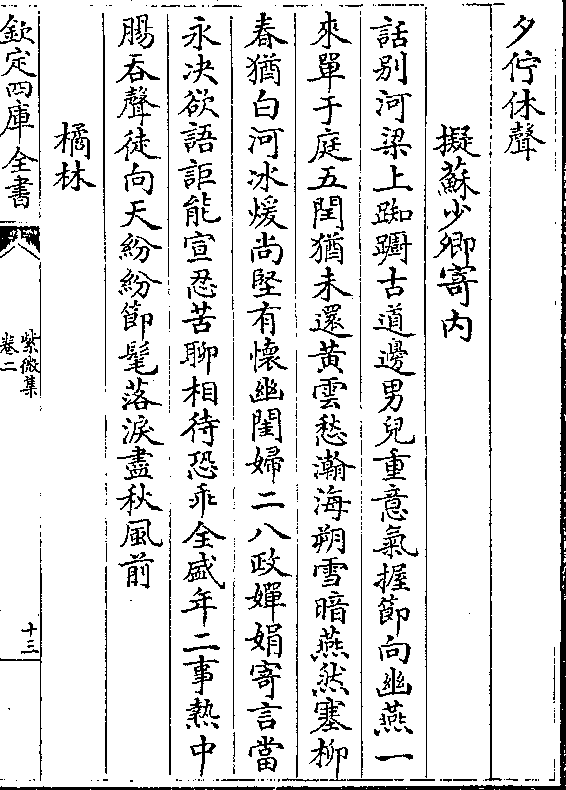 夕佇休聲
擬蘇少卿寄内
話别河梁上踟躕古道邊男兒重意氣握節向幽燕一
來單于庭五閏猶未還黄雲愁瀚海朔雪暗燕然塞柳
春猶白河冰煖尚堅有懷幽閨婦二八政嬋娟寄言當
永决欲語詎能宣忍苦聊相待恐乖全盛年二事熱中
腸吞聲徒向天紛紛節髦落淚盡秋風前
橘林
欽定四庫全書
紫微集
卷二
十三